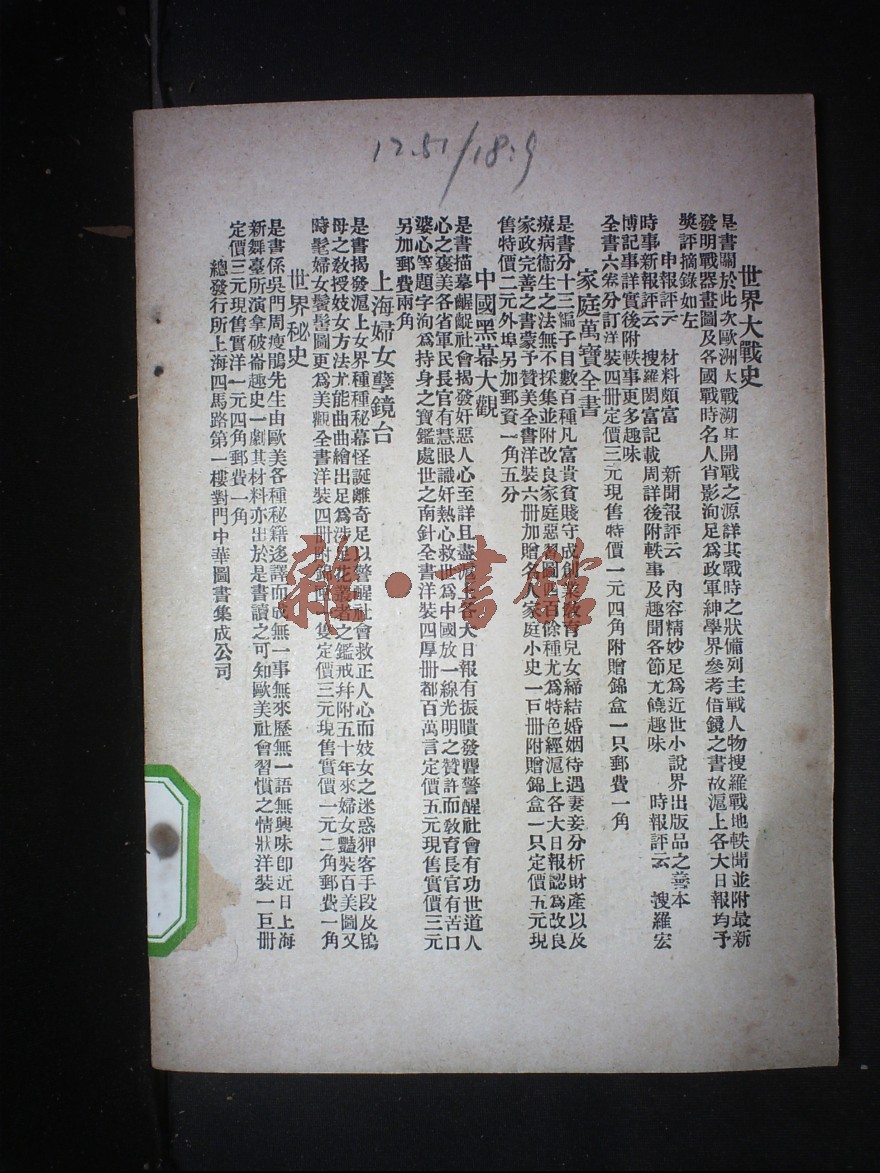 12.51/18:9
世界大戰史
是書關於此次歐洲大戰溯其開戰之源詳其戰時之狀備列主戰人物搜羅戰地軼聞並附最新
發明戰器畫圖及各國戰時名人肖影洵足爲政軍紳學界參考借鏡之書故滬上各大日報均予
獎評摘錄如左
申報評云 材料頗富 新聞報評云 內容精妙足爲近世小說界出版品之善本
時事新報評云 搜羅閎富記載周詳後附軼事及趣聞各節尤饒趣味 時報評云 搜羅宏
博記事詳實後附軼事更多趣味
全書六案分訂洋裝四冊定價三元現售特價一元四角附贈錦盒一只郵費一角
家庭萬寶全書
是書分十三編子目數百種凡富貴貧賤守成創業教育兒女締結婚姻待遇妻妾分析財產以及
療病衞生之法無不採集並附改良家庭惡習圖四百餘種尤爲特色經滬上各大日報認爲改良
家政完善之書蒙予贊美全書洋裝六冊加贈名人家庭小史一巨冊附贈錦盒一只定價五元現
售特價二元外埠另加郵資一角五分
中國黑幕大觀
是書描摹齷齪社會揭發奸惡人心至詳且盡滬上各大日報有振聵發聾警醒社會有功世道人
心之褒美各省軍民長官有慧眼識奸熱心救世爲中國放一線光明之贊許而教育長官有苦口
婆心等題字洵爲持身之寶鑑處世之南針全書洋裝四厚冊都百萬言定價五元現售實價三元
另加郵費兩角
上海婦女孽鏡台
是書揭發滬上女界種種秘幕怪誕離奇足以警醒社會救正人心而妓女之迷惑狎客手段及鴇
母之敎授妓女方法尤能曲曲繪出足爲涉足花叢者之鑑戒幷附五十年來婦女豔裝百美圖又
時髦婦女鬢髻圖更爲美觀全書洋裝四冊附錦匣一隻定價三元現售實價一元二角郵費一角
世界秘史
是書係吳門周瘦鵑先生由歐美各種秘籍迻譯而成無一事無來歷無一語無興味卽近日上海
新舞臺所演拿破崙趣史一劇其材料亦出於是書讀之可知歐美社會習慣之情狀洋裝一巨冊
定價三元現售實洋一元四角郵費一角
總發行所上海四馬路第一樓對門中華圖書集成公司
雜·書館